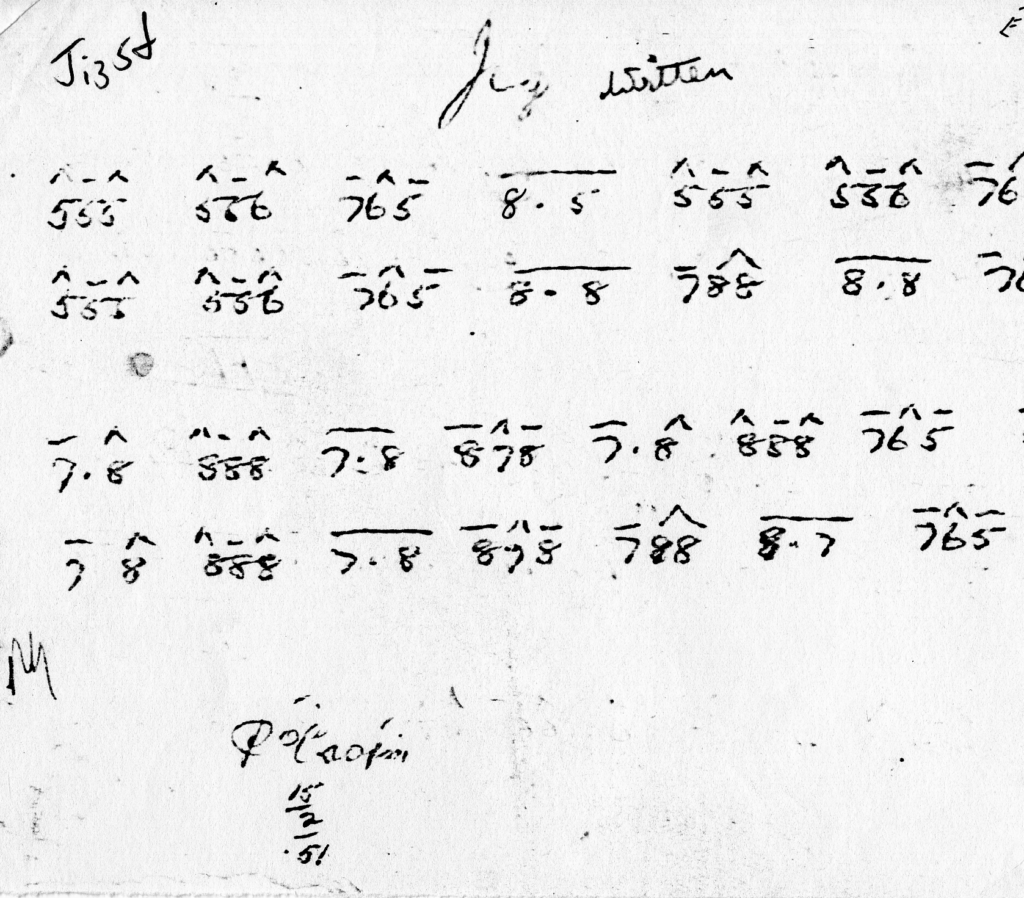 written
555 556 765 8. 5 555 556 76
555 556 765 8. 8 788 8. 8 76
7. 8 888 7. 8 878 7. 8 888 765
7 8 888 7. 8 878 788 8. 7 765
15
2
51